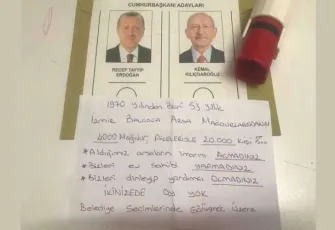 CUMHURBAŞKANI ADAYLARI
RECEP TAYYİP
ERDOĞAN
KEMAL
KILIÇDAROĞLU
1970 Yılından Beri 53 Yıllık
İzmir Balçova Arsa Mağdurlarındanım
4000 Mağdur, Aileleriyle 20.000 Kişi
* Aldığımız arsaların İmarını AÇMADINIZ
* Bizleri ev sahibi YAPMADINIZ
* Bizleri dinleyip yardımcı OLMADINIZ
İKİNİZEDE OY YOK
Belediye Seçimlerinde Görüşmek Üzere